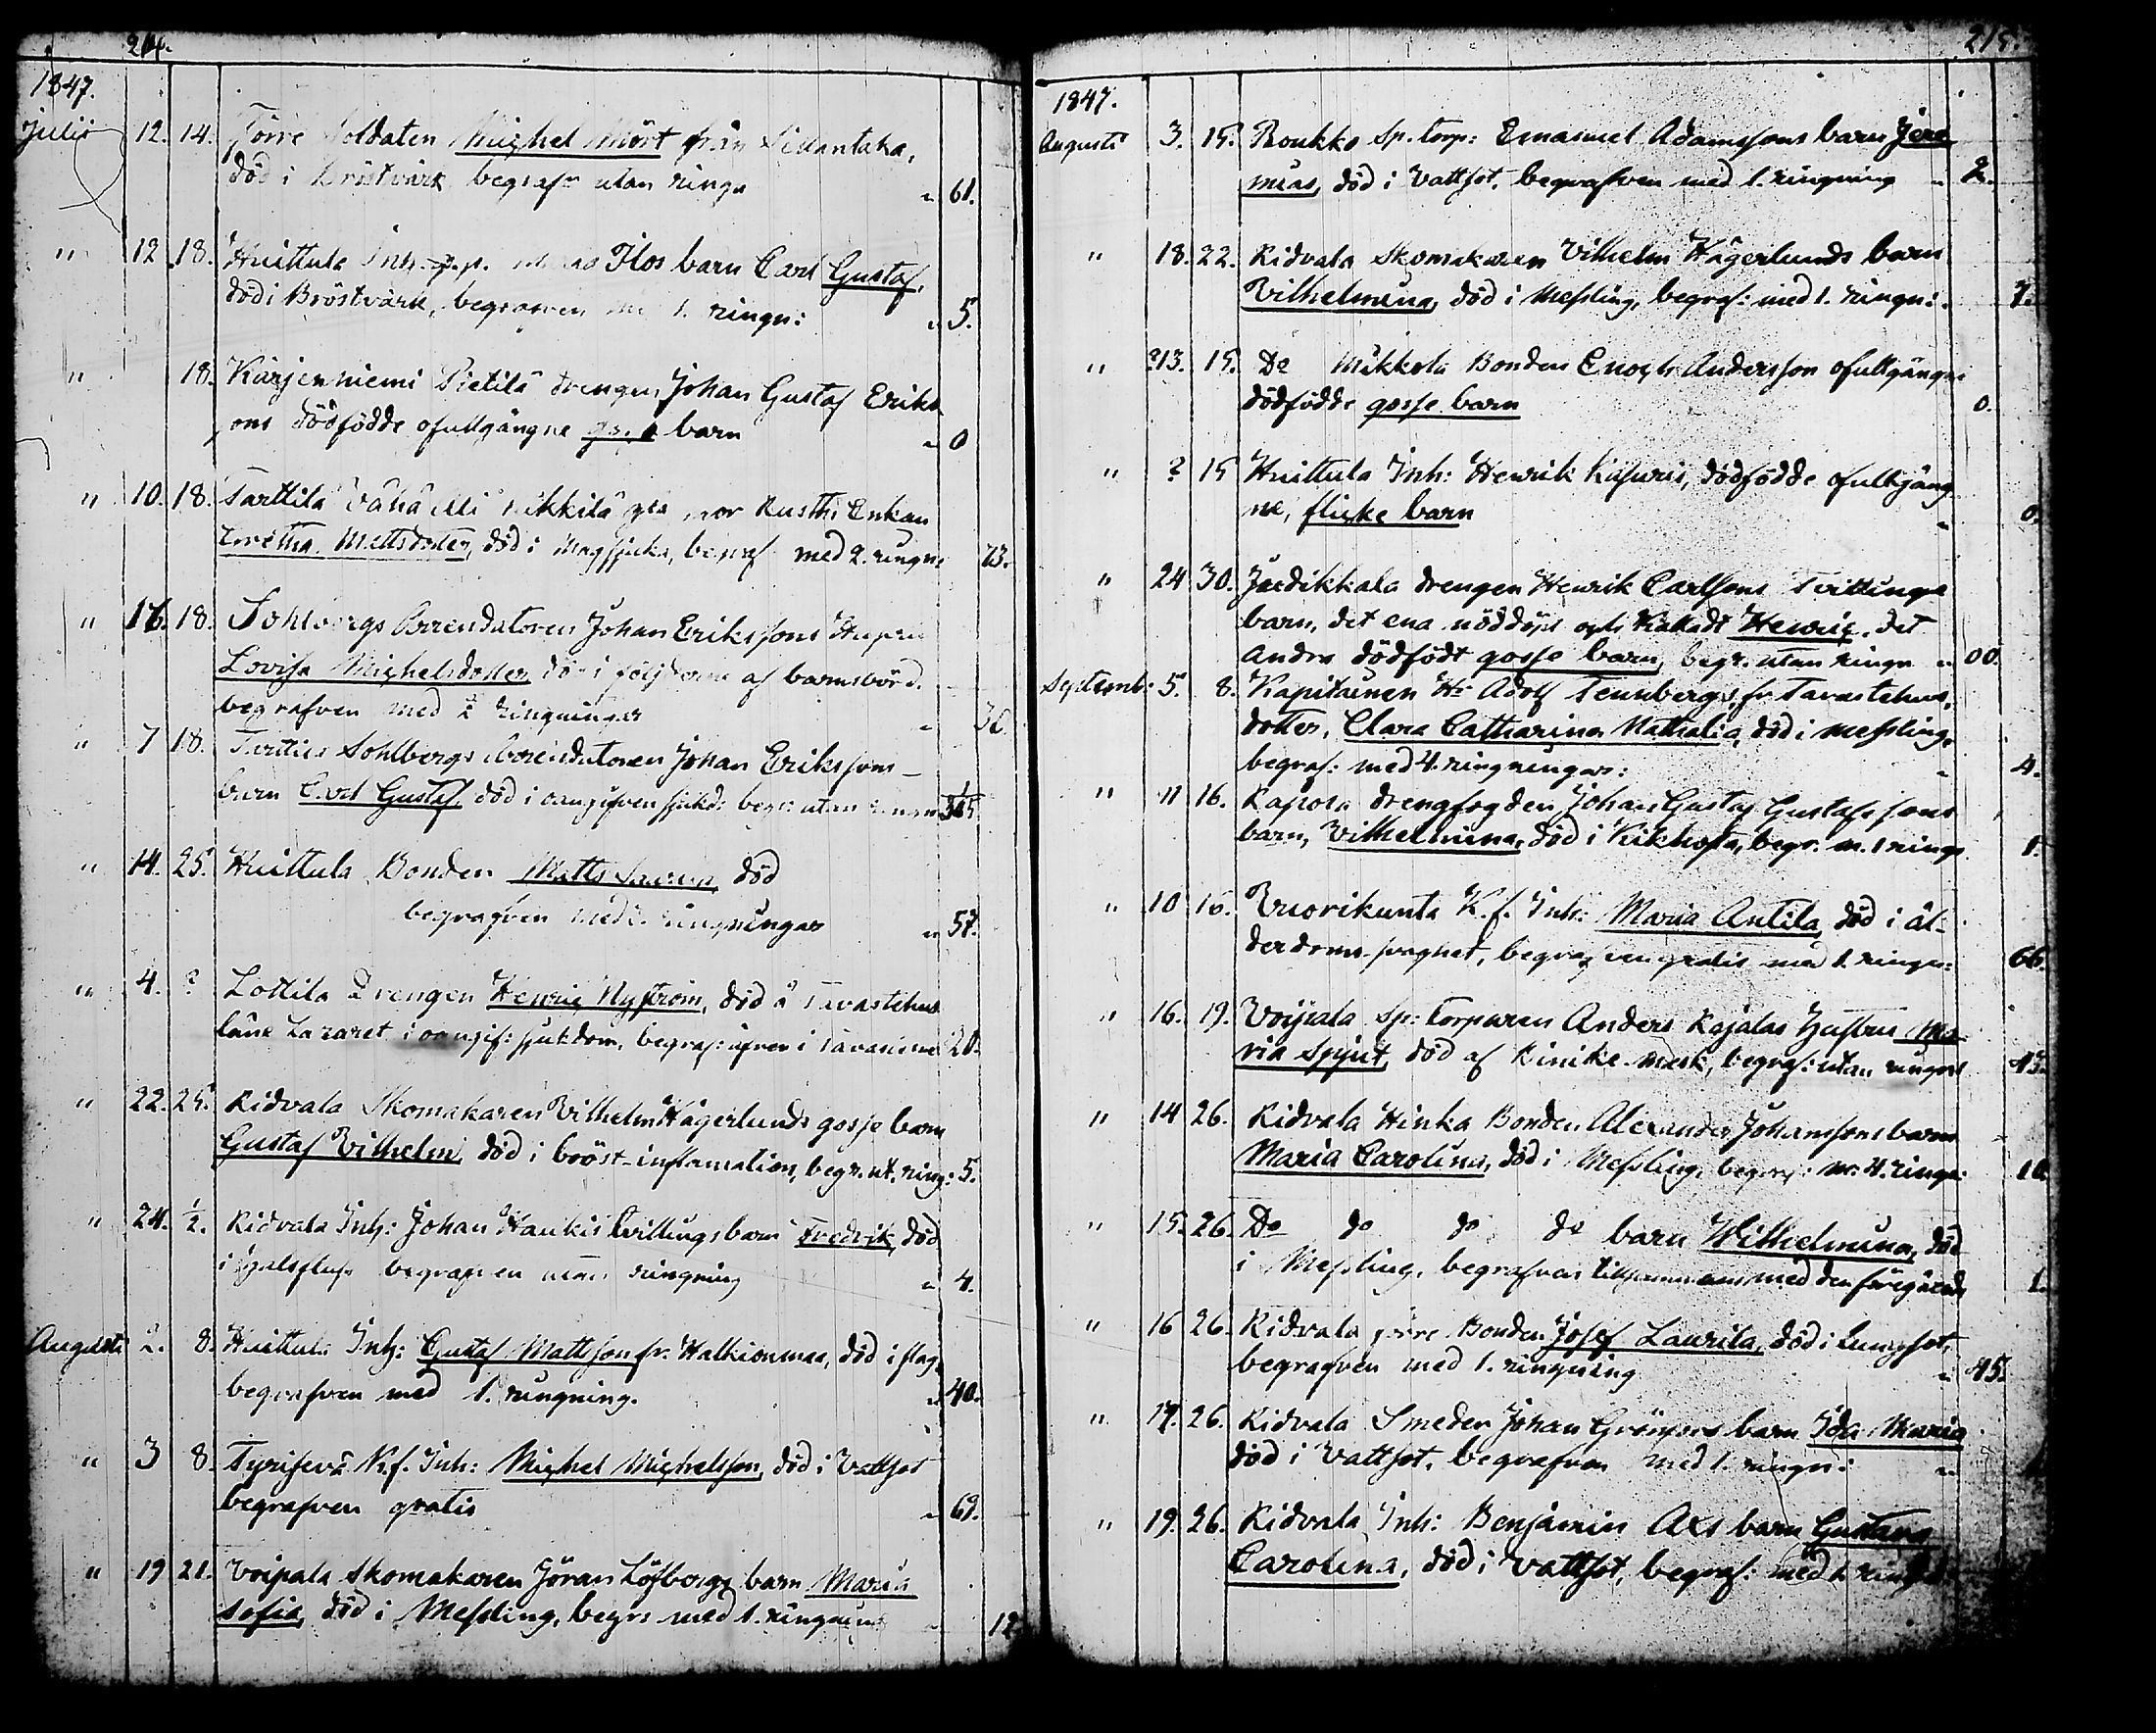 214.
1847.
Julii 12. 14. Förre Soldaten Michel Mört från
död i Bröstvärk begrafv utan ringn „ 61.
„ 12 18. Huittula Inh. Ilos barn Carl Gustaf,
död i Bröstvärk, begrafven 1. ringn: „ 5.
„ 18. Kärjenniemi Pietilä drengen Johan Gustaf Eriks
sons dödfödde ofullgångne barn „ 0
„ 10. 18. Tarttila Vähä Mickkilä Rusthr Enkan
Mattsdotter, död i begraf med 2. ringn: 73.
„ 16. 18. Sohlbergs Arrendatoren Johan Erikssons Hustru
Lovisa Michelsdotter, död i följderne af barnsbörd.
begrafven med 2 ringningar „
„ 7 18. Sohlbergs Arrendatoren Johan Erikssons
barn Carl Gustaf, död i oangifven sjukd: begr: utan
„ 14. 25. Huittula Bonden Matts död
begrafven med ringningar „ 57.
„ 4. ? Lottila Drengen Henric Nyström, död å Tavastehus
läns Lazaret i oangif: sjukdom, begraf: äfven i 20.
„ 22. 25. Ridvala Skomakaren Vilhelm Hägerlunds gosse barn
Gustaf Vilhelm, död i bröst-inflamation, begr. ut. ring: 5.
„ 24. ½. Ridvala Inh: Johan Haukis tvillingsbarn Fredrik, död
i begrafven utan ringning „ 4.
Augusti 2. 8. Huittula Inh: Gustaf Mattsson fr. Halkionmaa, död i slag,
begrafven med 1. ringning. „ 40.
„ 3 8. N.f. Inh: Michel Michelsson, död i Vattsot
begrafven gratis „ 69.
„ 19 21. Voipala Skomakaren Jöran Löfbergs barn Maria
Sofia, död i Messling, begrs med 1. ringning „ 12
215.
1847.
Augusti 3. 15. Roukko Sp. torp: Emanuel Adamssons barn Jere
mias, död i Vattsot, begrafven med 1. ringning „ 2.
„ 18. 22. Ridvala Skomakaren Vilhelm Hägerlunds barn
Vilhelmina, död i Messling, begraf: med 1. ringn: 7.
„ ?13. 15. Do Mikkola Bonden Enoch Andersson ofullgångne
dödfödde gosse barn 0.
„ ? 15 Huittula Inh: Henrik dödfödde ofullgång
ne, flicke barn „ 0.
„ 24 30. Jutikkala drengen Henrik Carlssons Tvillings
barn, det ena nöddöpt och kalladt Henric, det
Andra dödfödt gosse barn, begr. utan ringn „ 00.
Septemb: 5. 8. Kapitainen Hr Adolf Tennbergs, fr Tavastehus,
dotter, Clara Catharina Nathalia, död i Messling,
begraf: med 4. ringningar: „ 4.
„ 11 16. Kapola drengfogden Johan Gustaf Gustafssons
barn, Vilhelmina, död i Kikhosta, begr. m. 1 ringn 1.
„ 10 16. Vuorikunta N.f. Inh: Maria Antila, död i ål-
derdoms svaghet, begrafven gratis med 1. ringn: 66.
„ 16. 19. Voipala Sp: torparen Anders Kajalas Hustru Ma-
ria Spjut, död af Binike mask, begraf: utan ringn 43.
„ 14 26. Ridvala Hinka Bonden Alexander Johanssons barn
Maria Carolina, död i Messling, begraf: m. 4. ringn: 10.
„ 15. 26. Do do do do barn Wilhelmina, död
i Messling, begrafven tillsammans med den föregående 1.
„ 16 26. Ridvala förre Bonden Josef Laurila, död i Lungsot,
begrafven med 1. ringning „ 45.
„ 17. 26. Ridvala Smeden Johan Grönfors barn Ida Maria
död i Vattsot, begrafven med 1. ringn: „
„ 19. 26. Ridvala Inh: Benjamin Axs barn Gustava
Carolina, död i Vattsot, begraf: med 1. ringn